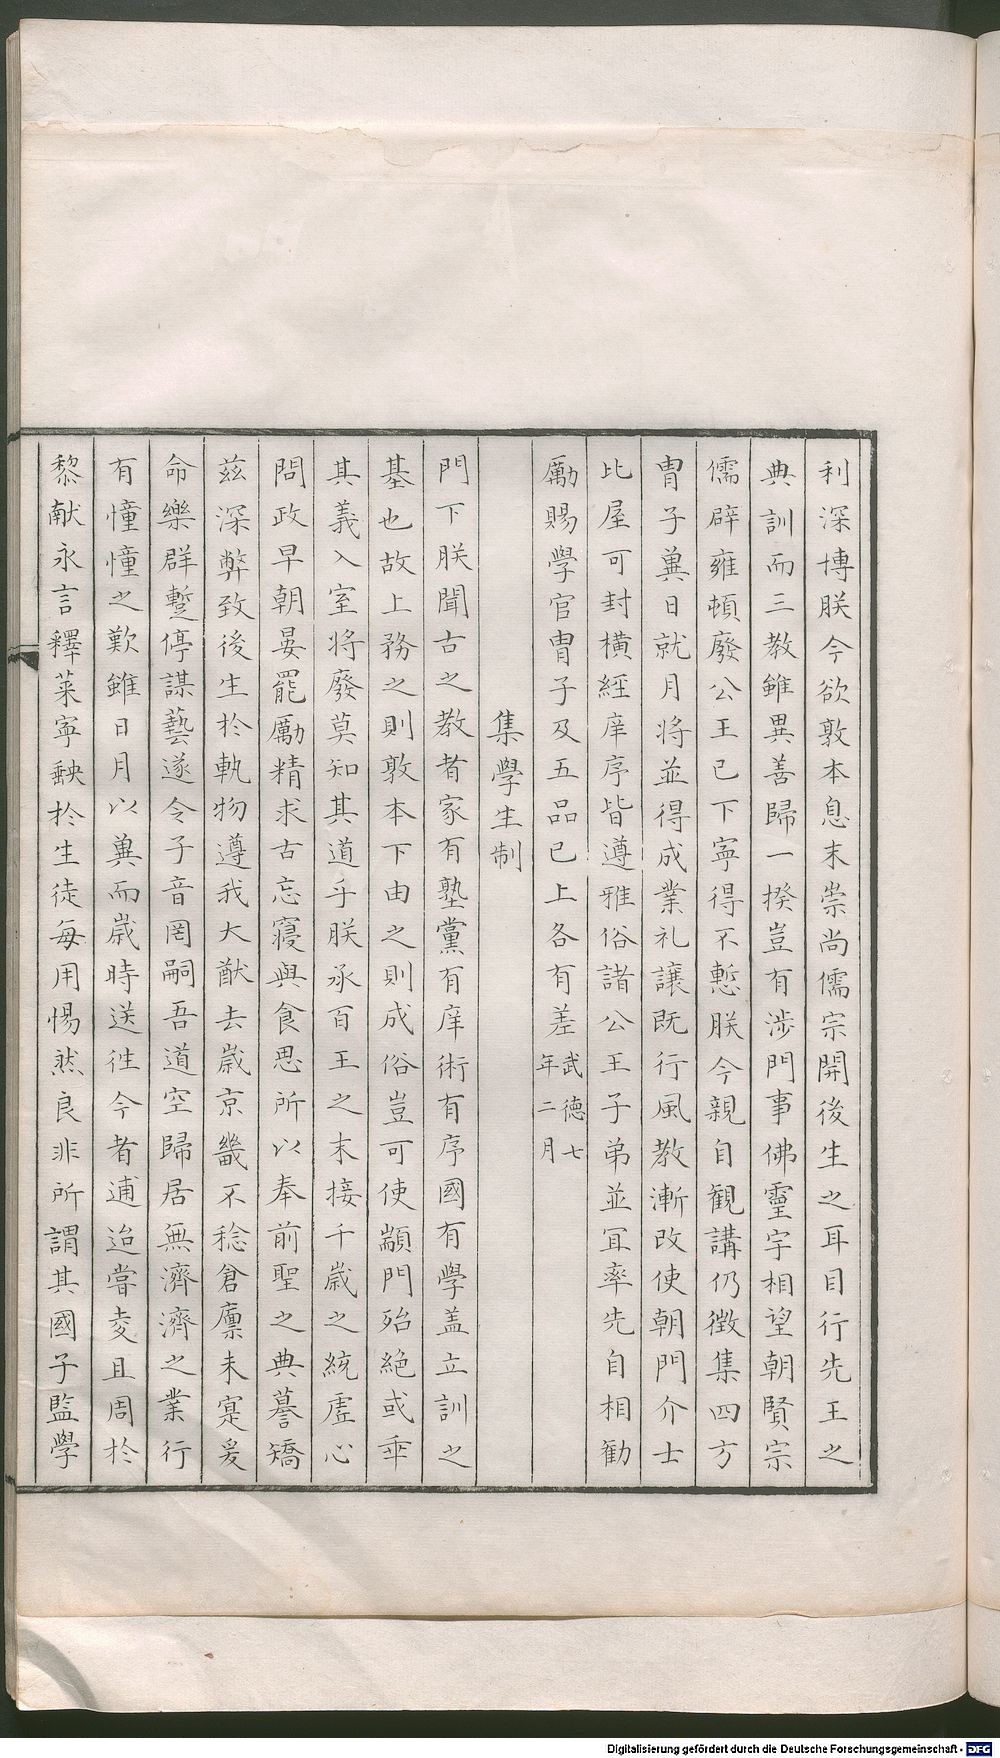 利深博朕今欲敦本息末崇尚儒宗開後生之耳目行先王之
典訓而三教雖異善歸一揆豈有涉門事佛靈宇相望朝賢宗
儒辟雍頓廢公王已下寜得不慙朕今親自観講仍徴集四方
冑子兾日就月將並得成業礼讓既行風教漸改使朝門介士
比屋可封橫經庠序皆遵雅俗諸公王子弟並冝率先自相勸
勵賜學官冑子及五品已上各有差武德七年二月
集學生制
門下朕聞古之教者家有塾黨有庠術有序國有學盖立訓之
基也故上務之則敦本下由之則成俗豈可使顓門殆絶或乖
其義入室将廢莫知其道乎朕承百王之末接千嵗之統虚心
問政早朝晏罷勵精求古忘寝與食思所以奉前聖之典謩矯
茲深弊致後生於軌物遵我大猷去嵗京畿不稔倉廪未寔爰
命樂群蹔停謀藝遂令子音罔嗣吾道空歸居無濟濟之業行
有憧憧之歎雖日月以兾而嵗時送徃今者逋迨嘗麦且周於
黎献永言釋菜寜斁於生徒每用惕然良非所謂其國子監學
Digitalisierung gefördert durch die Deutsche Forschungsgemeinschaft - DFG